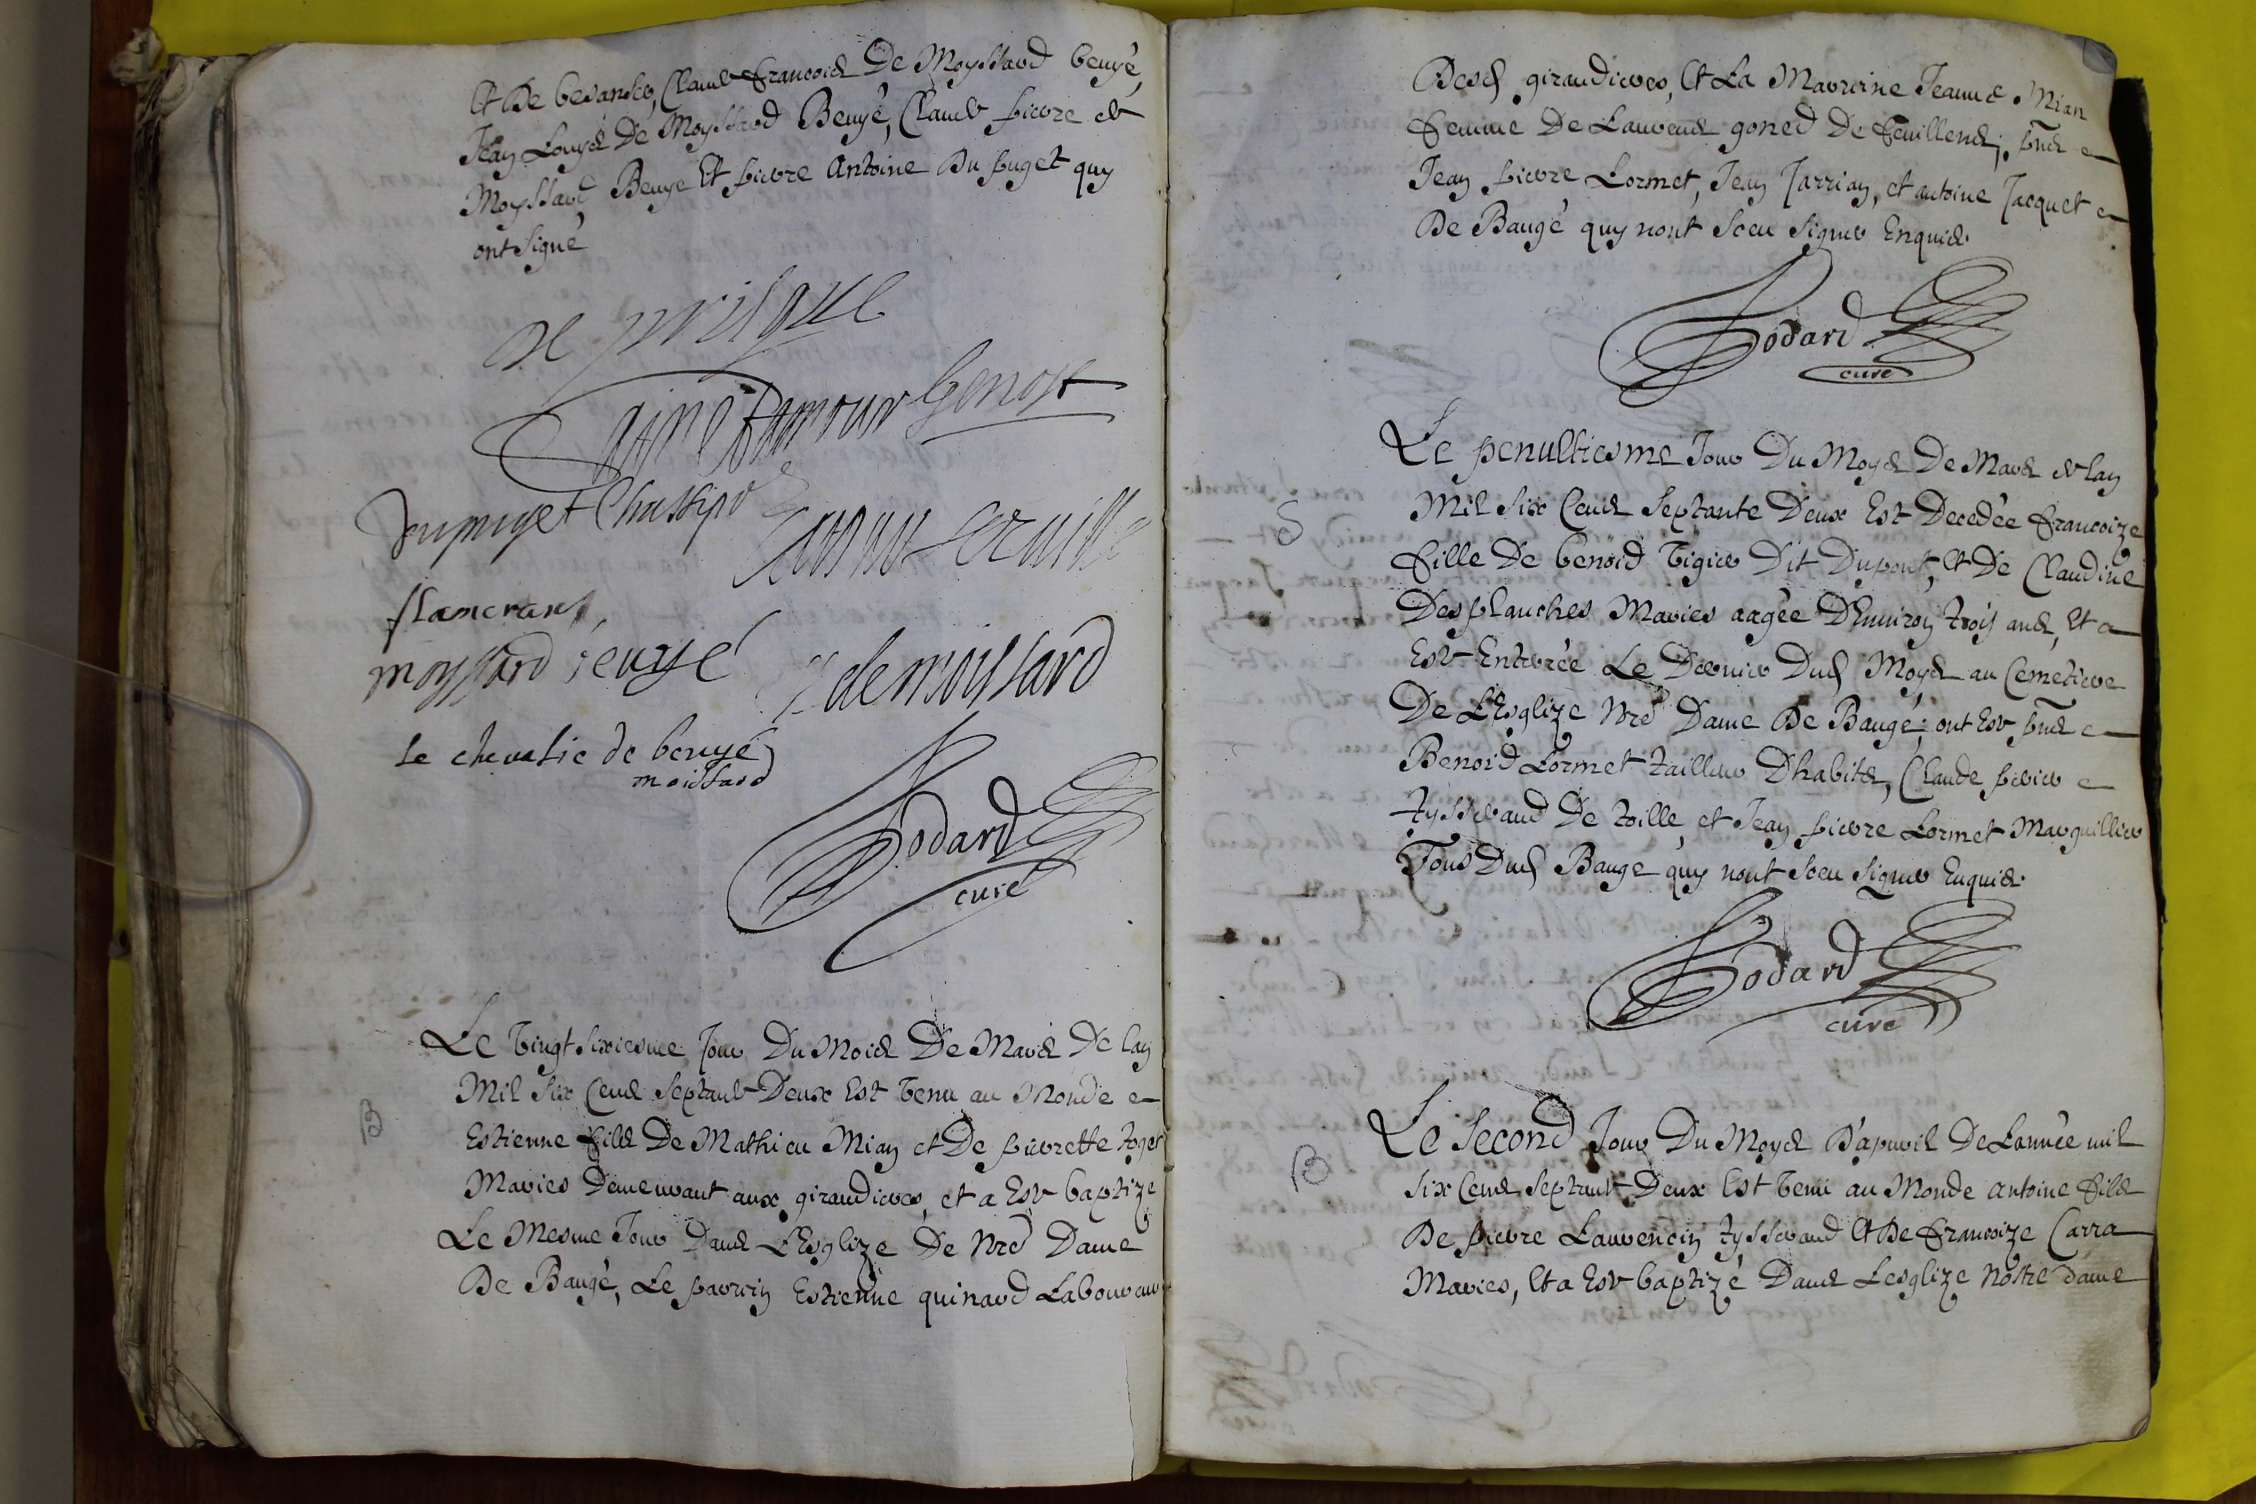 Et De besanser, Claude francois De Moyssard beuyé,
Jean Louys De Moyssard Beuyé, Claude pierre de
Moyssard Beuye Et pierre Antoine Du puget quy
ont signé
De prisque
Chastipo
flamerans
moyssard beuyé demoissard
Le chevalie de beuyé
moissard
Godard
curé
Le vingt sixiesme jour Du Mois De Mars De lan
B
Mil six Cens septante Deux Est venu au Monde
Estienne fils De Mathieu Mian et De pierrette roget
Maries Demeurant aux girandieres, et a Esté baptize
Le Mesme Jour Dans L'Esglize De Nre Dame
De Baugé, Le parrin Estienne quinard Laboureur
Desd girandieres, Et La Marrine Jeanne Mian
femme De Laurens goned De feuillens, pns
Jean pierre Lormet, Jean Jarrian, et antoine Jacquet
De Baugé quy nont sceu signer Enquis
Godard
curé
Le penultiesme Jour Du Moys De Mars de lan
S
Mil six Cens septante Deux Est Decedée francoize
fille De benoid Tigier Dit Dupont, Et De Claudine
Desplanches Maries aagée D'Enuiron trois ans, Et a
Esté Enterrée Le Dernier Dud Moys au Cemetiere
De L'Esglize Nre Dame De Baugé; ont Esté pns
Benoid Lormet tailleur D'habits, Claude perier
tysserand De toille, et Jean pierre Lormet Marguillier
Tous Dud Bauge quy nont sceu signer Enquis
Godard
curé
Le second Jour Du Moys D'apuril De Lannée mil
B
six Cens septante Deux Est venu au Monde antoine fils
De pierre Laurencin tysserand Et De francoize Carra
Maries, Et a Esté baptizé Dans L'esglize Nostre dame